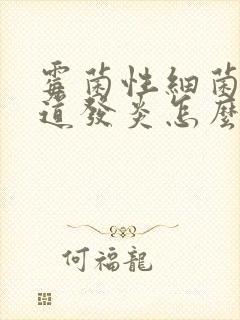 霉菌性細菌
道發炎怎麼
何福龍